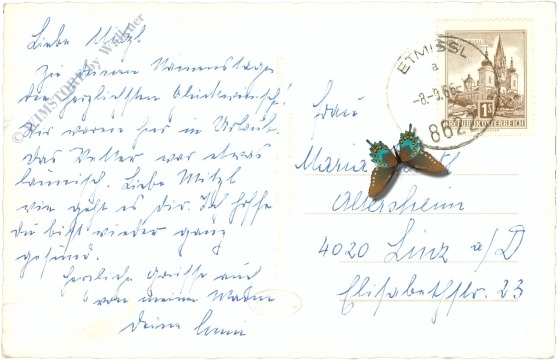 Liebe Mitzl
Zu deinem Namenstage
die herzlichsten Glückwünsche!
Wir waren hier in Urlaub.
Das Wetter war etwas
launisch. Liebe Mitzl
wie geht es dir. Ich hoffe
du bist wieder ganz
gesund.
Herzliche Grüsse auch
von meinem
Deine
© WIMSTORE by Winkler
ETMISSL
a
-8.-9.66
862
1S
REPUBLIK ÖSTERREICH
Frau
Maria
Altersheim
4020 Linz a/D
Elisabethstr. 23